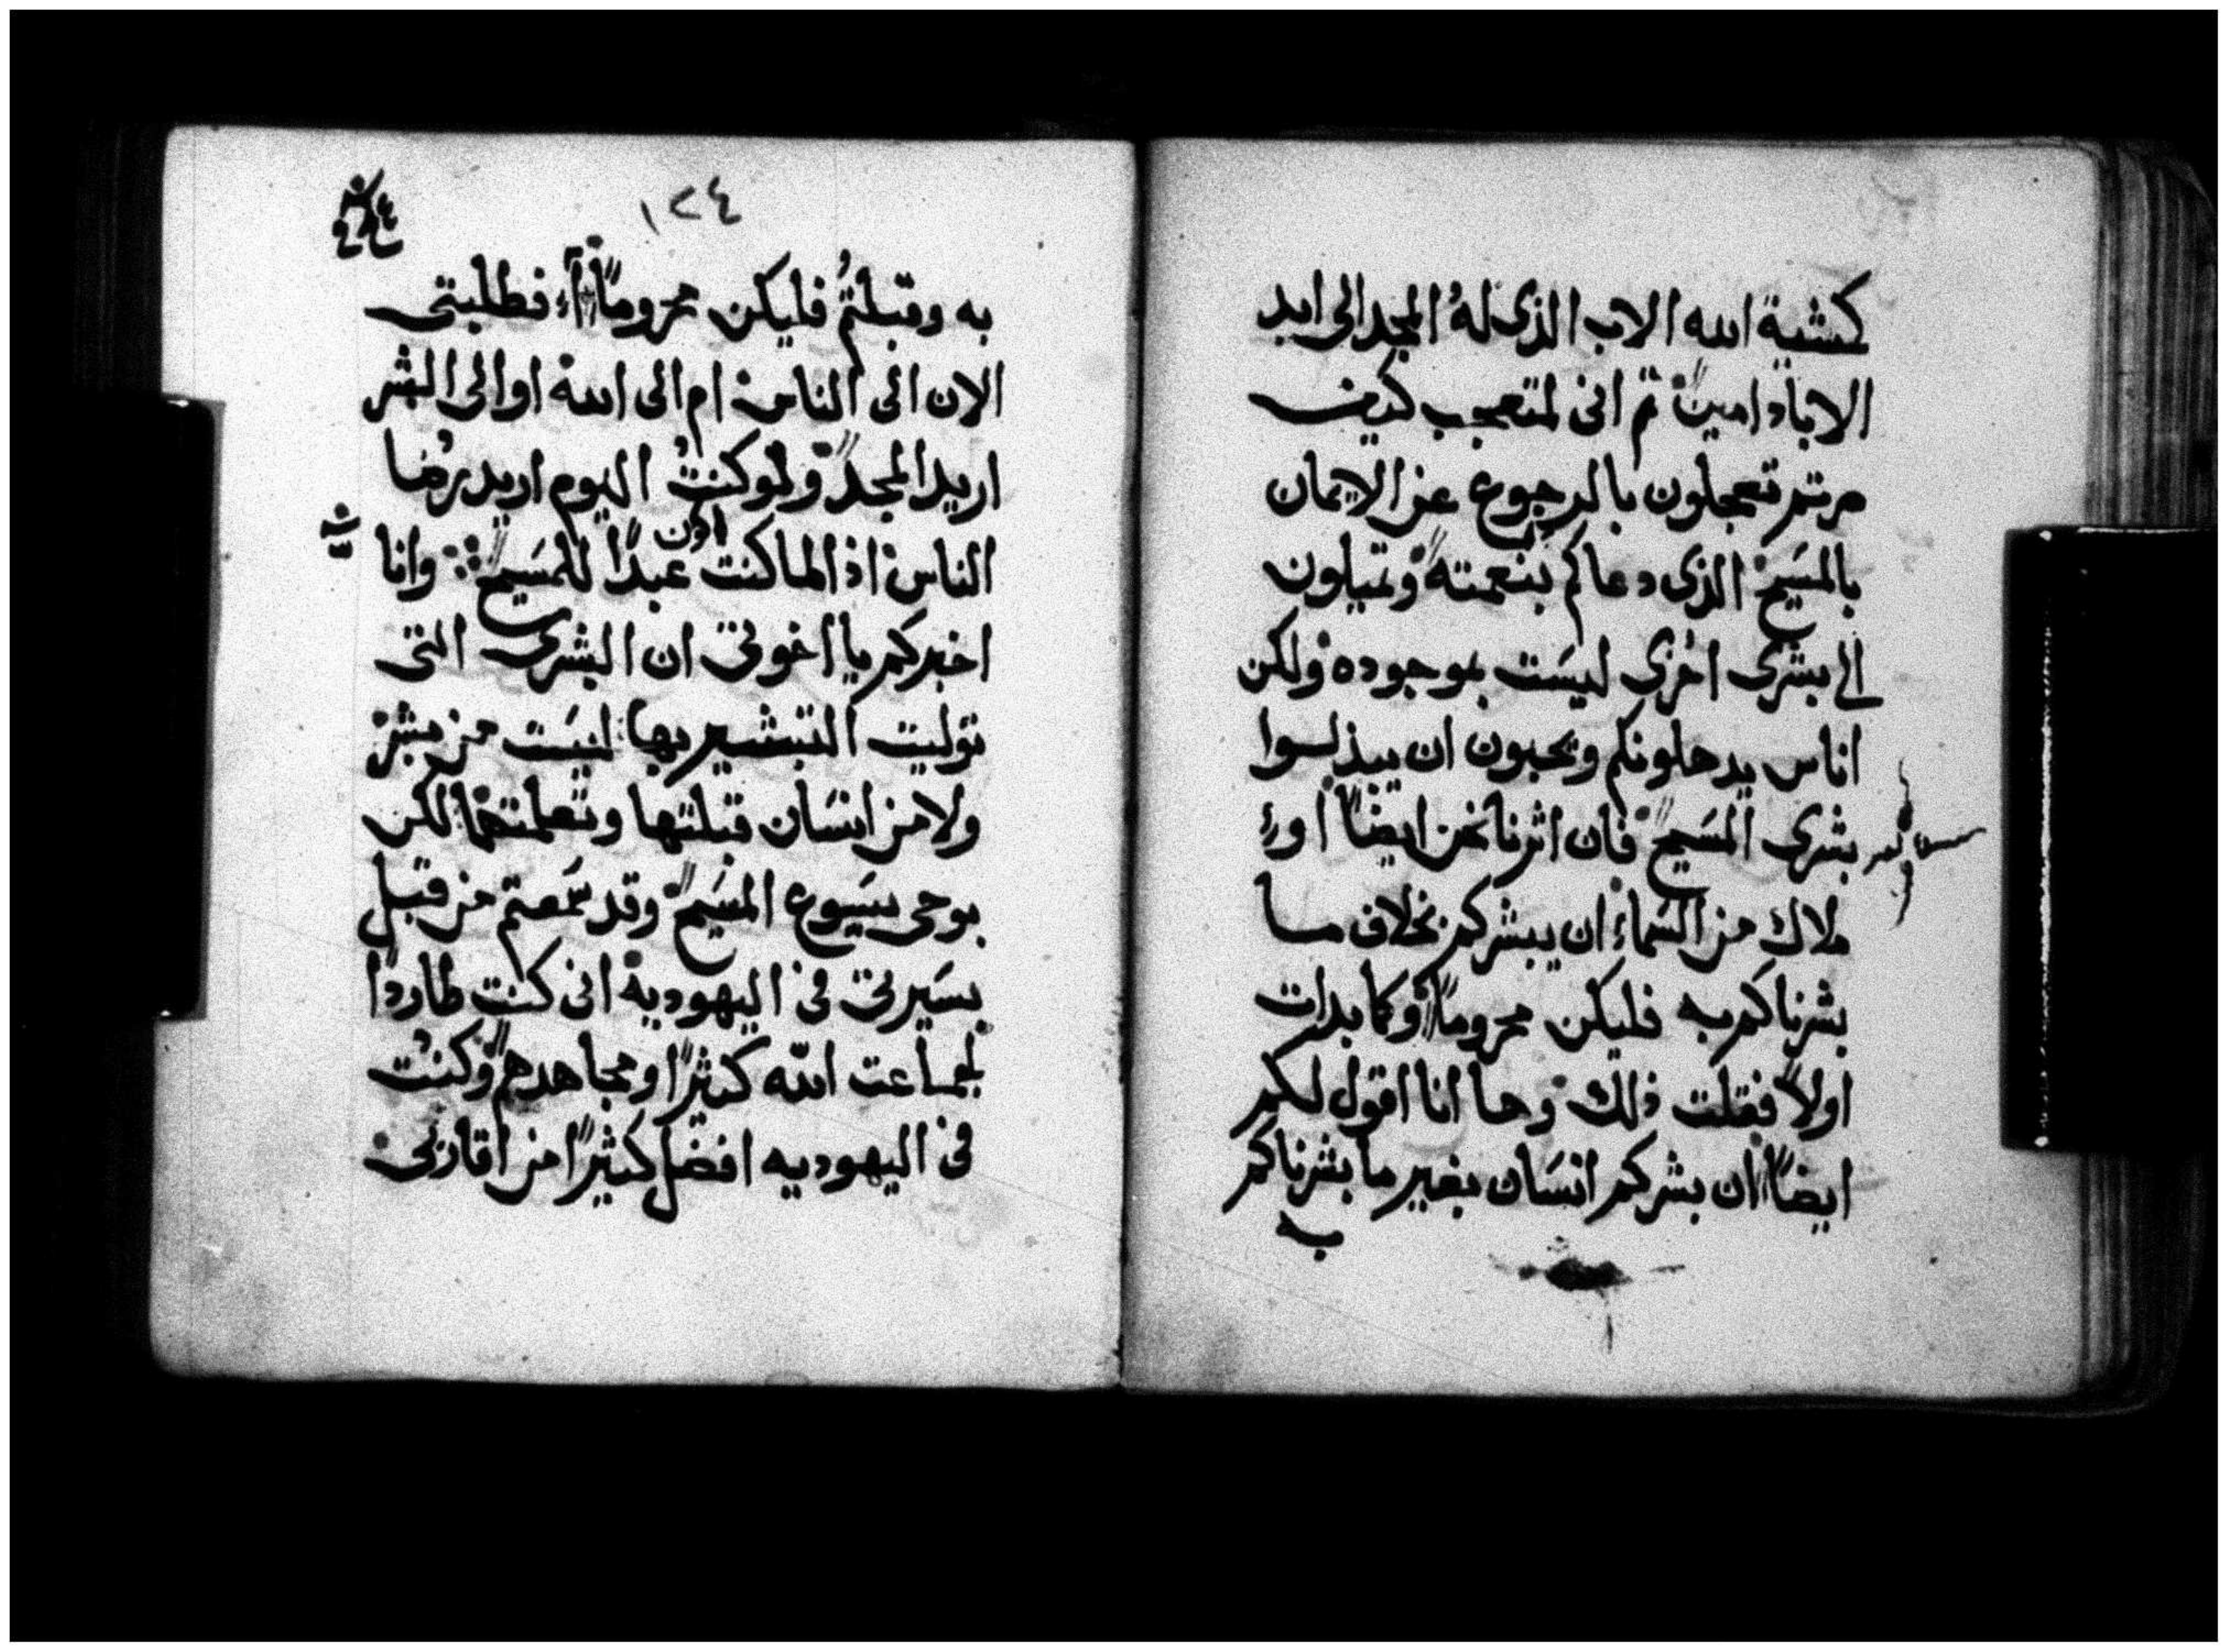 كمشية الله الاب الذى لهُ المجد الى ابد
الاباد امين ثم انى لمتعجب كيف
صرتم تعجلون بالرجوع عن الايمان
بالمسيح الذى دعاكم بنعمته وتميلون
الى بشرى اخرى ليست بموجوده ولكن
اناس يدخلونكم ويحبون ان يبدلوا
بشرى المسيح فان اثرنا نحن ايضًا او
ملاك من السماء ان يبشركم بخلاف ما
بشرناكم به فليكن محرومًا وكما بدات
اولاً فقلت ذلك وها انا اقول لكم
ايضًا ان بشركم انسان بغير ما بشرناكم
به
١٢٤
به وقبلتمُ فليكن محرومًا فطلبتى
الان الى الناس ام الى الله او الى البشر
اريد المجد ولو كنتُ اليوم اريد رضا
الناس اذا لما كنت اكون عبدًا للمسيح وانا
اخبركم يا اخوتى ان البشرى التى
توليت التبشير بها ليست من بشر
ولا من انسان قبلتها وتعلمتها لكن
بوحى يسوع المسيح وقد سمعتم من قبل
بسيرتى فى اليهودية انى كنت طاردًا
لجماعت الله كثيرًا ومجاهدهم وكنت
فى اليهوديه افضل كثيرًا من اقاربى